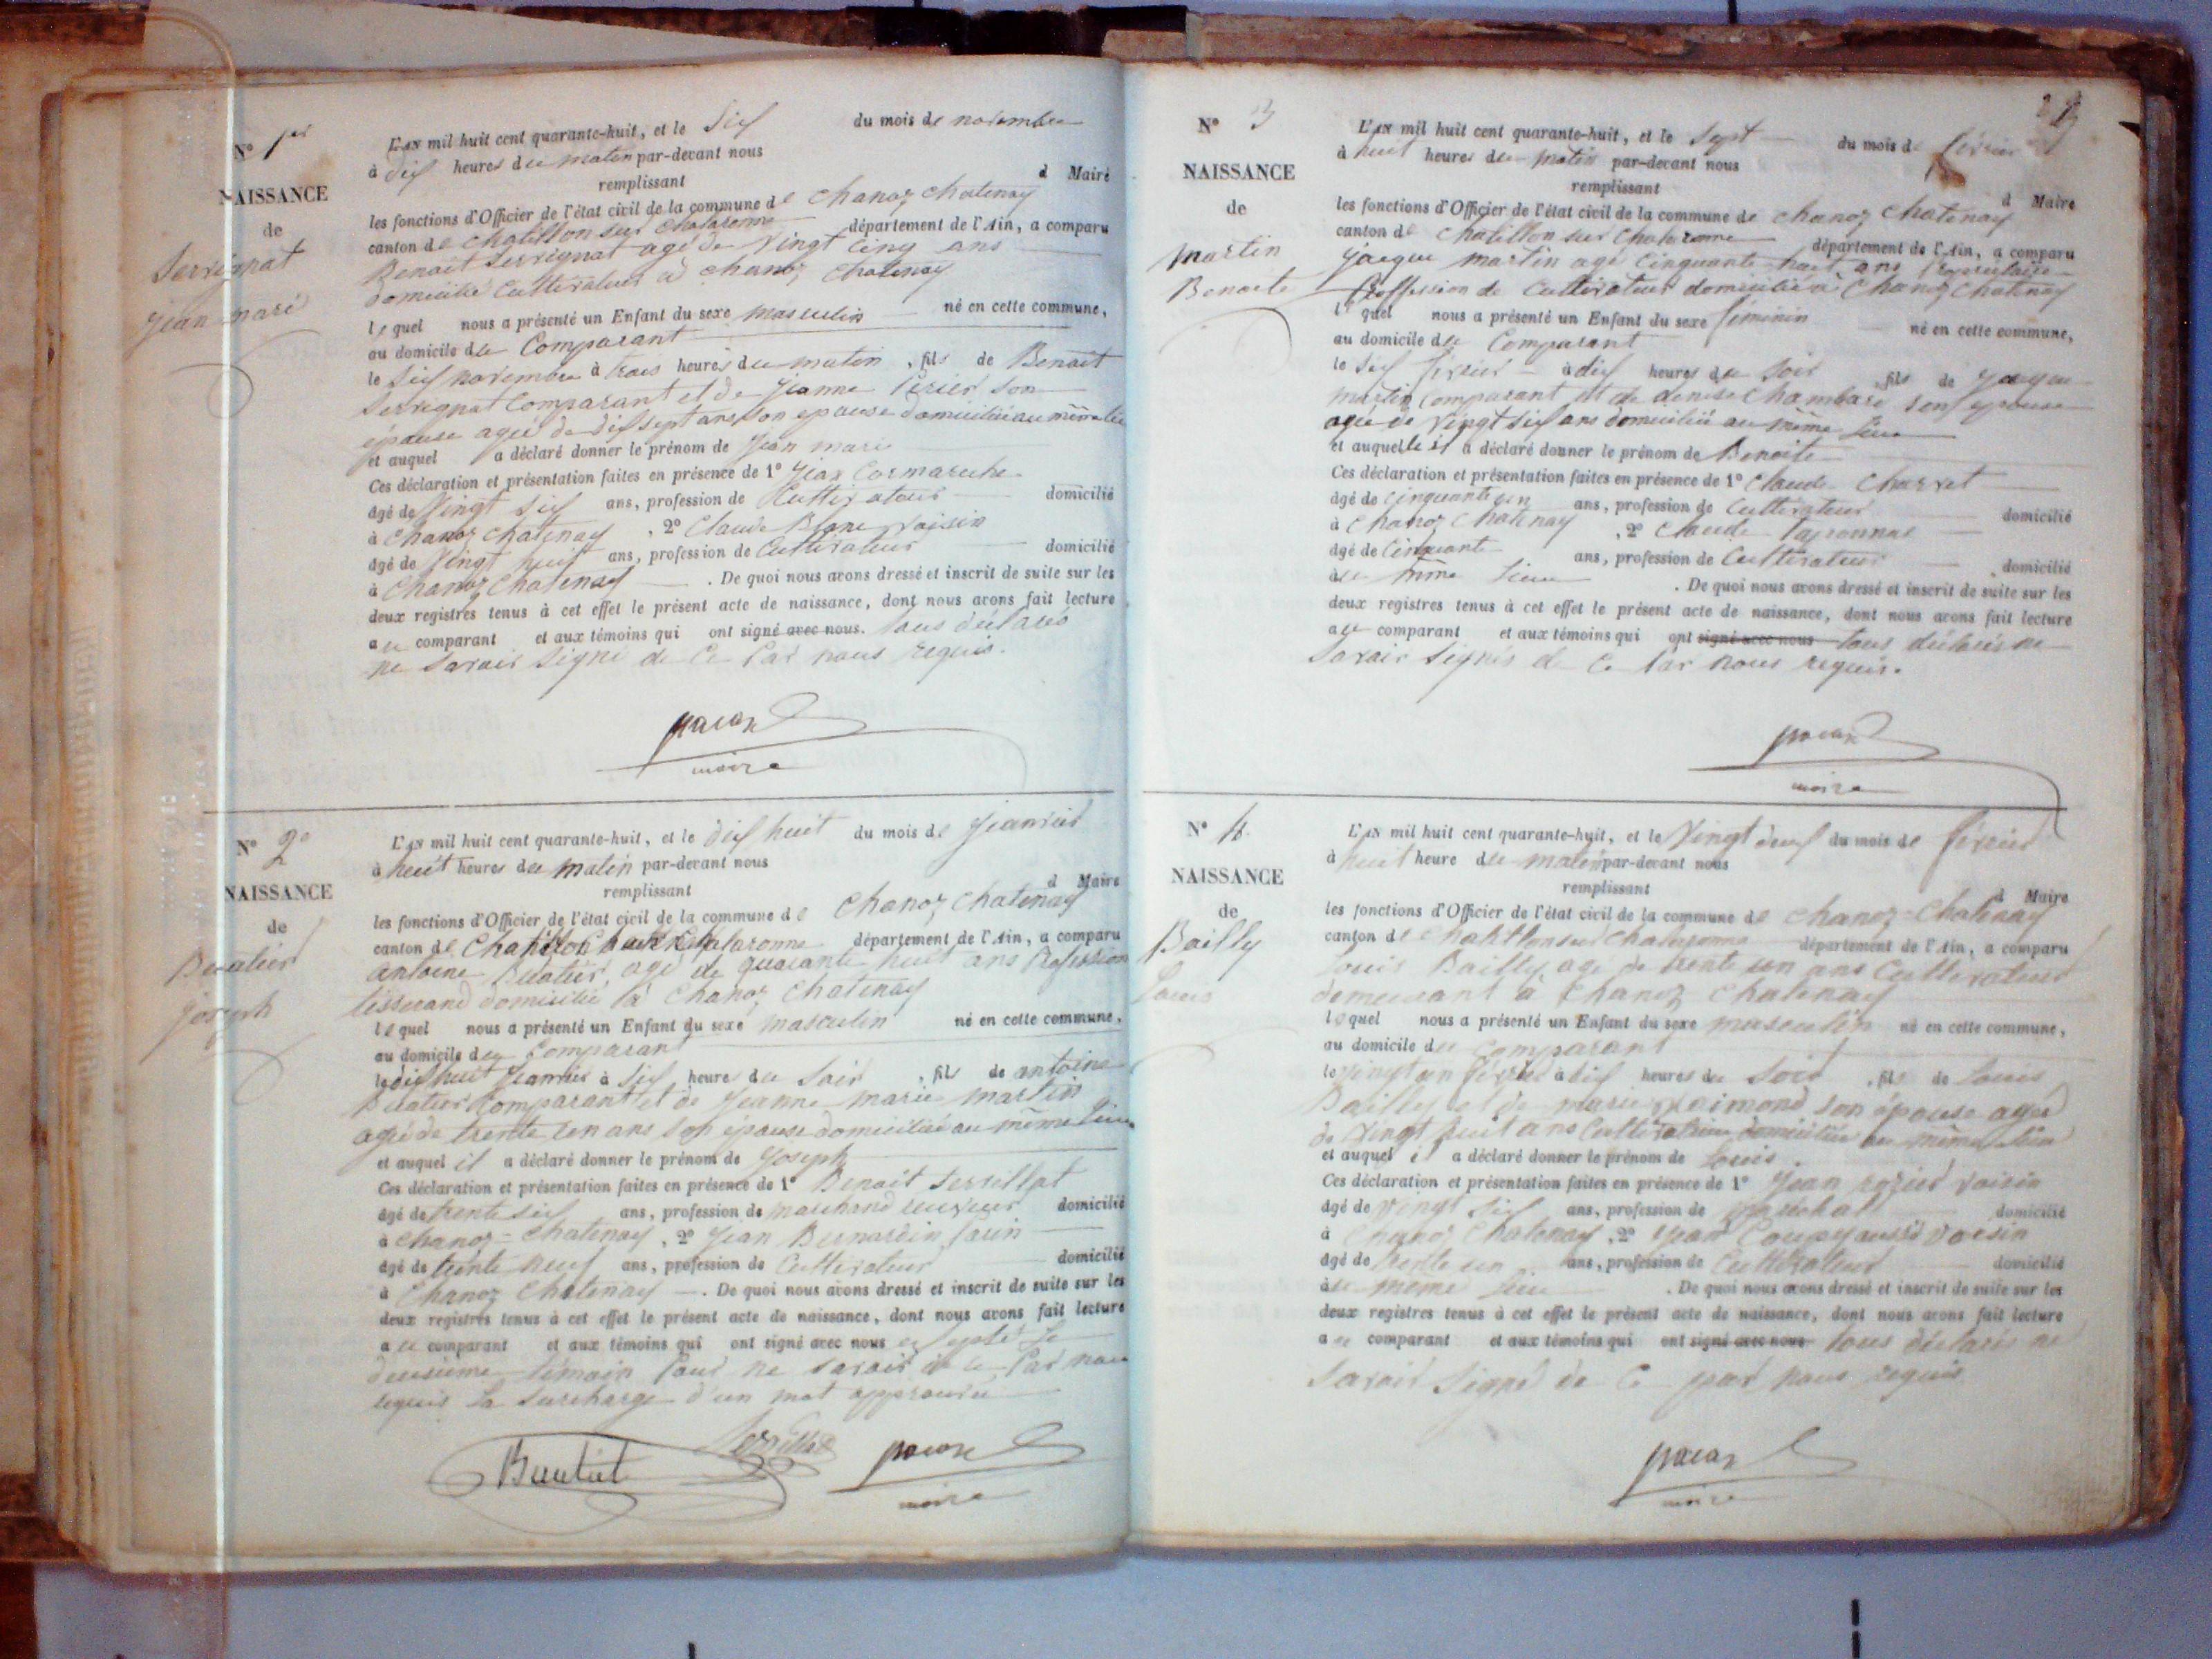 N° 1er
NAISSANCE
de
Servignat
Jean marie
L'AN mil huit cent quarante-huit, et le Six du mois de novembre
à dix heures du matin par-devant nous
d Maire
remplissant
les fonctions d'Officier de l'état civil de la commune de Chanoz Chatenay
canton de Chatillon sur Chalaronne département de l'Ain, a comparu
Benoit Servignat agé de Vingt Cinq ans
domicilié Cultivateur à Chanoz Chatenay
lequel nous a présenté un Enfant du sexe masculin né en cette commune,
au domicile du Comparant
le Six novembre à trois heures du matin, fils de Benoit
Servignat Comparant et de Jeanne Perier Son
épouse agée de dix sept ans, son epouse domiciliée au même lieu
et auquel a déclaré donner le prénom de Jean marie
Ces déclaration et présentation faites en présence de 1°
âgé de Vingt Six ans, profession de Cultivateur domicilié
à Chanoz Chatenay, 2° Claude Blanc voisin
âgé de Vingt huit ans, profession de Cultivateur domicilié
à Chanoz Chatenay. De quoi nous avons dressé et inscrit de suite sur les
deux registres tenus à cet effet le présent acte de naissance, dont nous avons fait lecture
au comparant et aux témoins qui ont signé avec nous. tous déclarés
ne Savoir Signé de Ce Par nous requis.
maire
N° 2e
NAISSANCE
de
Buatier
Joseph
L'AN mil huit cent quarante-huit, et le dix huit du mois de Janvier
à huit heures du matin par-devant nous
d Maire
remplissant
les fonctions d'Officier de l'état civil de la commune de Chanoz Chatenay
canton de Chatillon sur Chalaronne département de l'Ain, a comparu
antoine Buatier, agé de quarante huit ans Profession
tisserand domicilié à Chanoz Chatenay
lequel nous a présenté un Enfant du sexe masculin né en cette commune,
au domicile du Comparant
le dix huit Janvier à Six heures du Soir, fils de antoine
Buatier Comparant et de Jeanne marie martin
agée de trente un ans son epouse domiciliée au même lieu
et auquel il a déclaré donner le prénom de Joseph
Ces déclaration et présentation faites en présence de 1° Benoit Servillat
âgé de trente six ans, profession de marchand domicilié
à Chanoz-Chatenay, 2° Jean Bernardin
âgé de trente neuf ans, profession de Cultivateur domicilié
à Chanoz Chatenay. De quoi nous avons dressé et inscrit de suite sur les
deux registres tenus à cet effet le présent acte de naissance, dont nous avons fait lecture
au comparant et aux témoins qui ont signé avec nous excepté le
deuxième témoin Pour ne savoir de ce Par nous
requis La Surcharge d'un mot approuvée
Buatier Servillat
maire
N° 3
NAISSANCE
de
Martin
Benoite
L'AN mil huit cent quarante-huit, et le Sept du mois de février
à huit heures du matin par-devant nous
d Maire
remplissant
les fonctions d'Officier de l'état civil de la commune de Chanoz Chatenay
canton de Chatillon sur Chalaronne département de l'Ain, a comparu
Jacque martin agé Cinquante huit ans Propriétaire
Proffession de Cultivateur domicilié à Chanoz Chatenay
lequel nous a présenté un Enfant du sexe féminin né en cette commune,
au domicile du Comparant
le Six février à dix heures du Soir, fils de Jacque
martin Comparant et de denise Chambard Son epouse
agée de Vingt Six ans domiciliée au même lieu
et auquelle il a déclaré donner le prénom de Benoite
Ces déclaration et présentation faites en présence de 1° Claude Charvet
âgé de Cinquante un ans, profession de Cultivateur domicilié
à Chanoz Chatenay, 2° Claude Taponnas
âgé de Cinquante ans, profession de Cultivateur domicilié
au même lieu. De quoi nous avons dressé et inscrit de suite sur les
deux registres tenus à cet effet le présent acte de naissance, dont nous avons fait lecture
au comparant et aux témoins qui ont signé avec nous tous déclarés ne
Savoir Signés de Ce Par nous requis.
maire
N° 4
NAISSANCE
de
Bailly
Louis
L'AN mil huit cent quarante-huit, et le Vingt deux du mois de février
à huit heure du matin par-devant nous
d Maire
remplissant
les fonctions d'Officier de l'état civil de la commune de Chanoz-Chatenay
canton de Chatillon sur Chalaronne département de l'Ain, a comparu
Louis Bailly, agé de trente un ans Cultivateur
demeurant à Chanoz Chatenay
lequel nous a présenté un Enfant du sexe masculin né en cette commune,
au domicile du Comparant
le vingt un février à dix heures du Soir, fils de Louis
Bailly et de marie Raimond son épouse agée
de Vingt huit ans Cultivatrice domiciliée au même lieu
et auquel il a déclaré donner le prénom de Louis.
Ces déclaration et présentation faites en présence de 1° Jean rozier voisin
âgé de Vingt Six ans, profession de Maréchal domicilié
à Chanoz Chatenay, 2° Jean Coupy aussi voisin
âgé de trente un ans, profession de Cultivateur domicilié
au même lieu. De quoi nous avons dressé et inscrit de suite sur les
deux registres tenus à cet effet le présent acte de naissance, dont nous avons fait lecture
au comparant et aux témoins qui ont signé avec nous tous déclarés ne
Savoir Signé de Ce par nous requis
maire